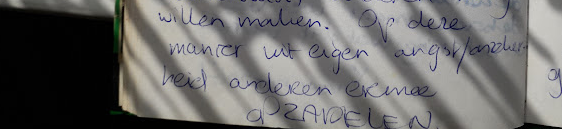 willen maken. Op deze
manier uit eigen angst/onzeker-
heid anderen ermee
opZADELEN.